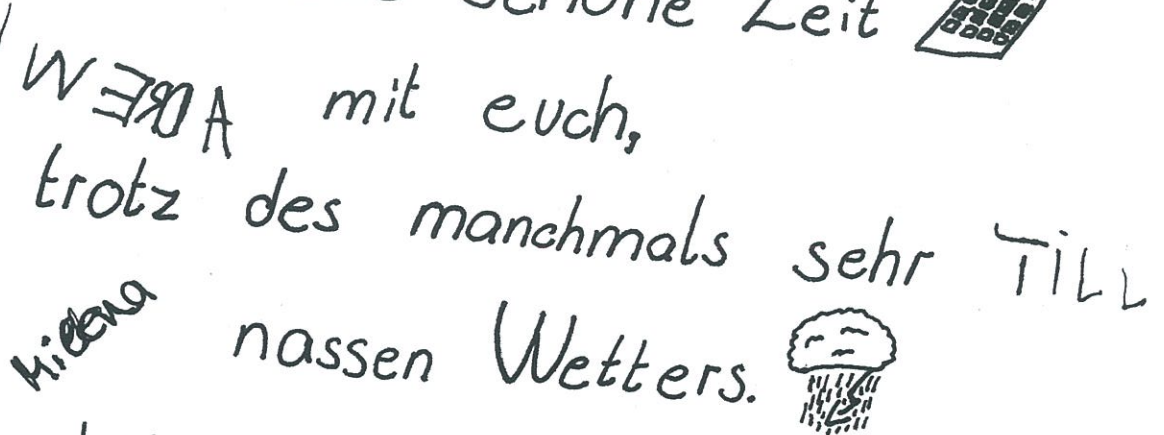 schöne Zeit
mit euch,
trotz des manchmals sehr TiLL
nassen Wetters.